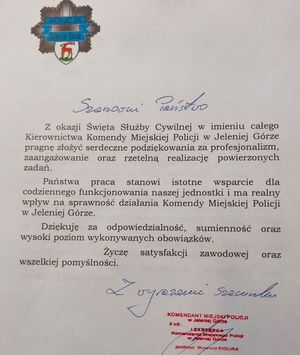 POLICJA
Szanowni Państwo
Z okazji Święta Służby Cywilnej w imieniu całego
Kierownictwa Komendy Miejskiej Policji w Jeleniej Górze
pragnę złożyć serdeczne podziękowania za profesjonalizm,
zaangażowanie oraz rzetelną realizację powierzonych
zadań.
Państwa praca stanowi istotne wsparcie dla
codziennego funkcjonowania naszej jednostki i ma realny
wpływ na sprawność działania Komendy Miejskiej Policji
w Jeleniej Górze.
Dziękuję za odpowiedzialność, sumienność oraz
wysoki poziom wykonywanych obowiązków.
Życzę satysfakcji zawodowej oraz
wszelkiej pomyślności.
Z wyrazami szacunku
KOMENDANT MIEJSKI POLICJI
w Jeleniej Górze
z up.
I ZASTĘPCA
Komendanta Miejskiego Policji
w Jeleniej Górze